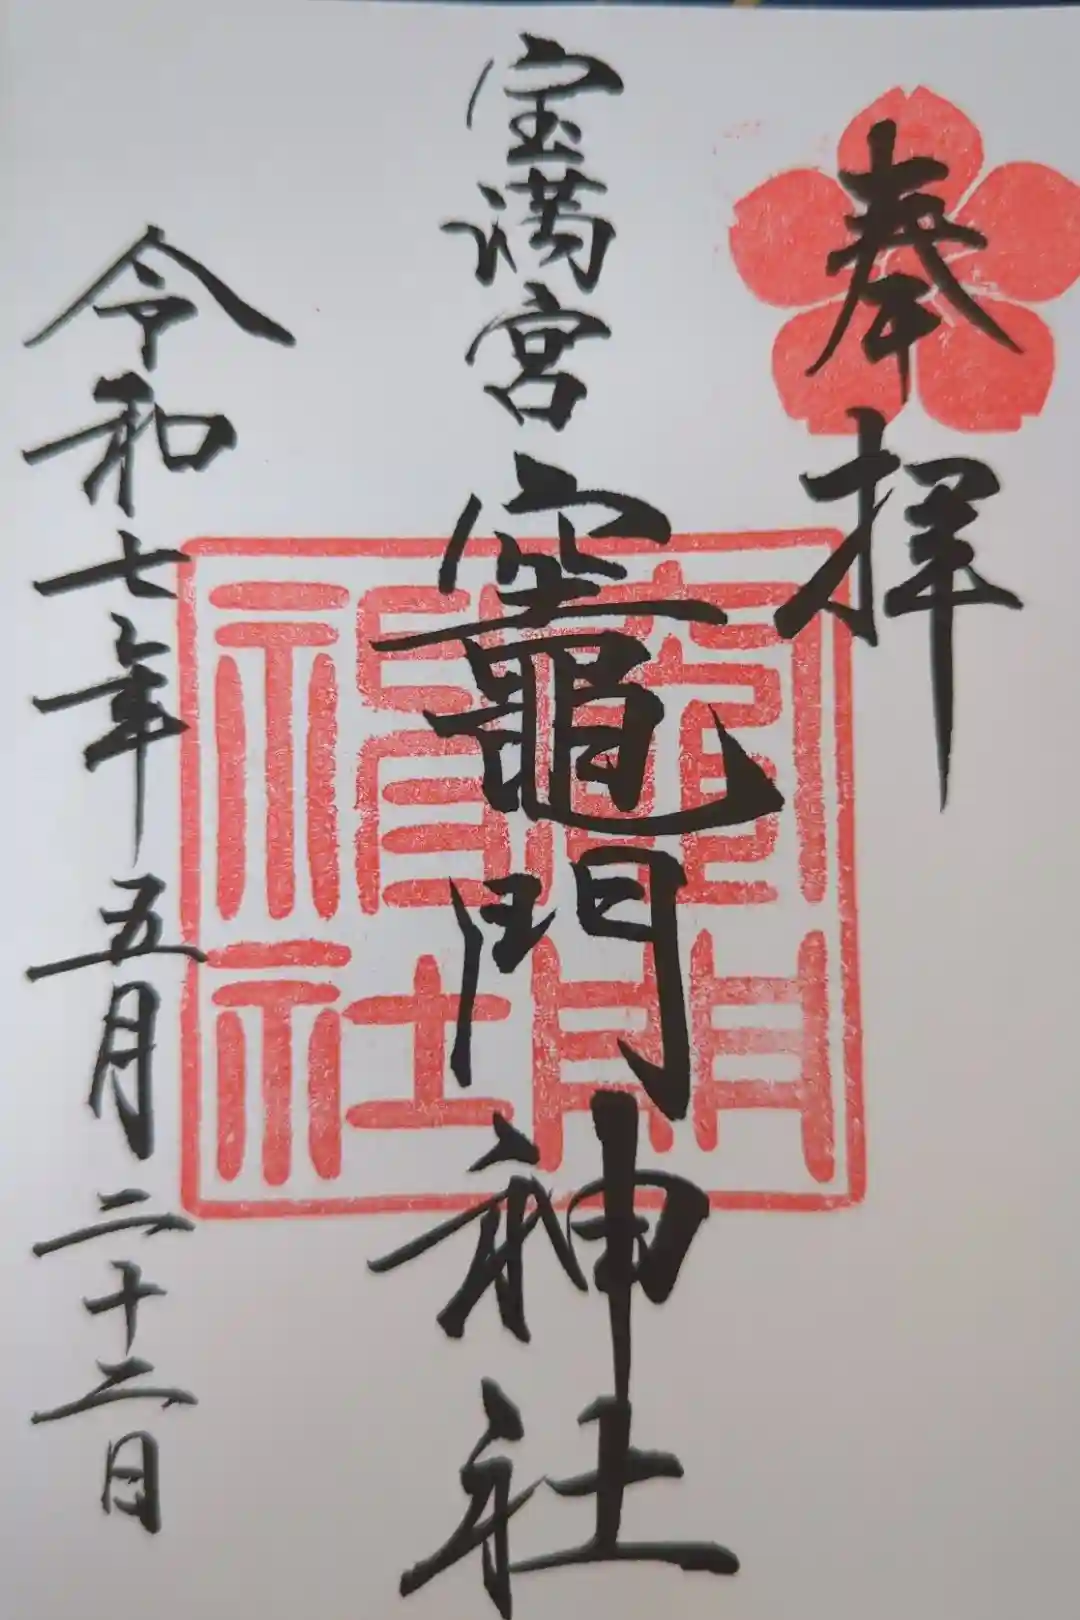 奉拝
宝満宮 竈門神社
令和七年五月二十二日
竈門
神社